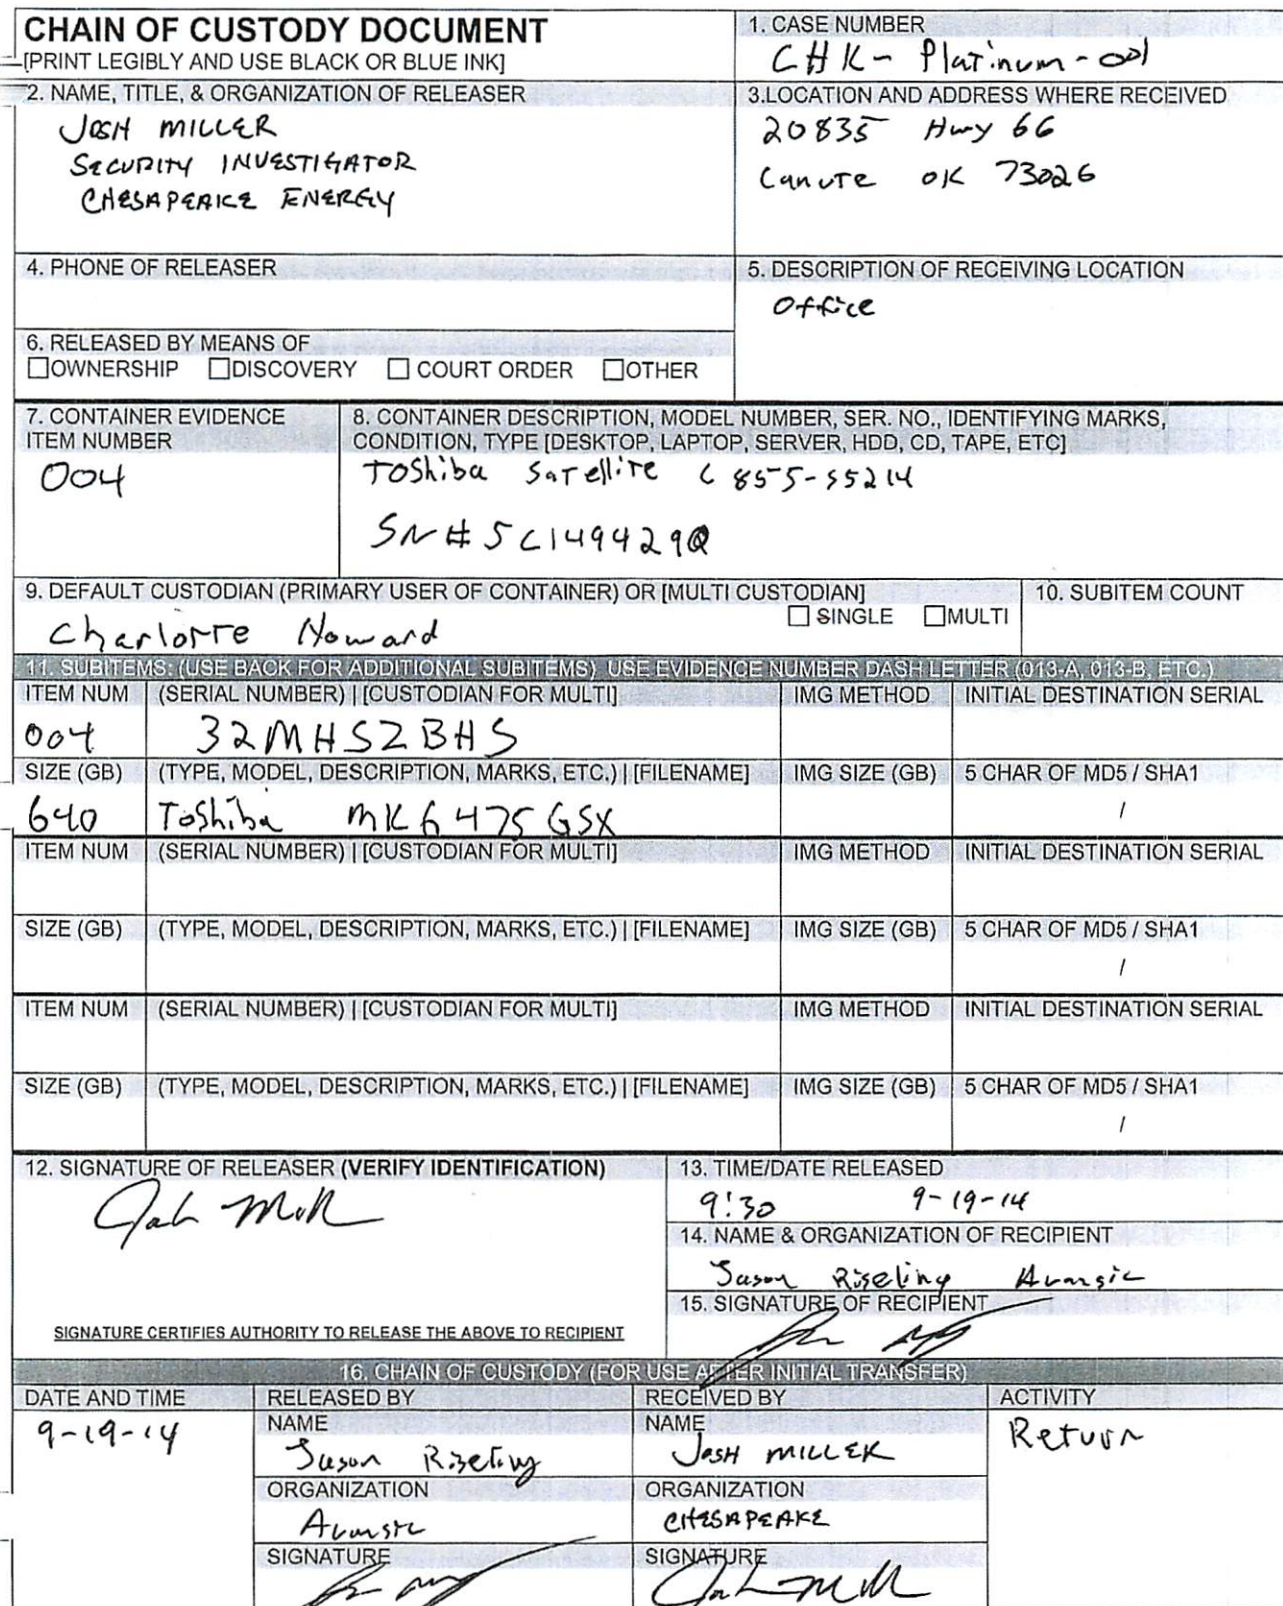 CHAIN OF CUSTODY DOCUMENT
[PRINT LEGIBLY AND USE BLACK OR BLUE INK]
1. CASE NUMBER
CHK- Platinum-001
2. NAME, TITLE, & ORGANIZATION OF RELEASER
JOSH MILLER
SECURITY INVESTIGATOR
CHESAPEAKE ENERGY
3.LOCATION AND ADDRESS WHERE RECEIVED
20835 Hwy 66
Canute OK 73026
4. PHONE OF RELEASER
5. DESCRIPTION OF RECEIVING LOCATION
Office
6. RELEASED BY MEANS OF
☐OWNERSHIP ☐DISCOVERY ☐ COURT ORDER ☐OTHER
7. CONTAINER EVIDENCE
ITEM NUMBER
004
8. CONTAINER DESCRIPTION, MODEL NUMBER, SER. NO., IDENTIFYING MARKS,
CONDITION, TYPE [DESKTOP, LAPTOP, SERVER, HDD, CD, TAPE, ETC]
Toshiba Satellite C 855-S5214
SN# 5C149429Q
9. DEFAULT CUSTODIAN (PRIMARY USER OF CONTAINER) OR [MULTI CUSTODIAN]
☐ SINGLE ☐MULTI
Charlotte Howard
10. SUBITEM COUNT
11. SUBITEMS: (USE BACK FOR ADDITIONAL SUBITEMS) USE EVIDENCE NUMBER DASH LETTER (013-A, 013-B, ETC.)
ITEM NUM (SERIAL NUMBER) | [CUSTODIAN FOR MULTI] IMG METHOD INITIAL DESTINATION SERIAL
004 32MHSZBHS
SIZE (GB) (TYPE, MODEL, DESCRIPTION, MARKS, ETC.) | [FILENAME] IMG SIZE (GB) 5 CHAR OF MD5 / SHA1
640 Toshiba MK6475GSX /
ITEM NUM (SERIAL NUMBER) | [CUSTODIAN FOR MULTI] IMG METHOD INITIAL DESTINATION SERIAL
SIZE (GB) (TYPE, MODEL, DESCRIPTION, MARKS, ETC.) | [FILENAME] IMG SIZE (GB) 5 CHAR OF MD5 / SHA1
/
ITEM NUM (SERIAL NUMBER) | [CUSTODIAN FOR MULTI] IMG METHOD INITIAL DESTINATION SERIAL
SIZE (GB) (TYPE, MODEL, DESCRIPTION, MARKS, ETC.) | [FILENAME] IMG SIZE (GB) 5 CHAR OF MD5 / SHA1
/
12. SIGNATURE OF RELEASER (VERIFY IDENTIFICATION)
SIGNATURE CERTIFIES AUTHORITY TO RELEASE THE ABOVE TO RECIPIENT
13. TIME/DATE RELEASED
9:30 9-19-14
14. NAME & ORGANIZATION OF RECIPIENT
Jason Riseling Avansic
15. SIGNATURE OF RECIPIENT
16. CHAIN OF CUSTODY (FOR USE AFTER INITIAL TRANSFER)
DATE AND TIME RELEASED BY RECEIVED BY ACTIVITY
9-19-14 NAME NAME Return
Jason Riseling JOSH MILLER
ORGANIZATION ORGANIZATION
Avansic CHESAPEAKE
SIGNATURE SIGNATURE